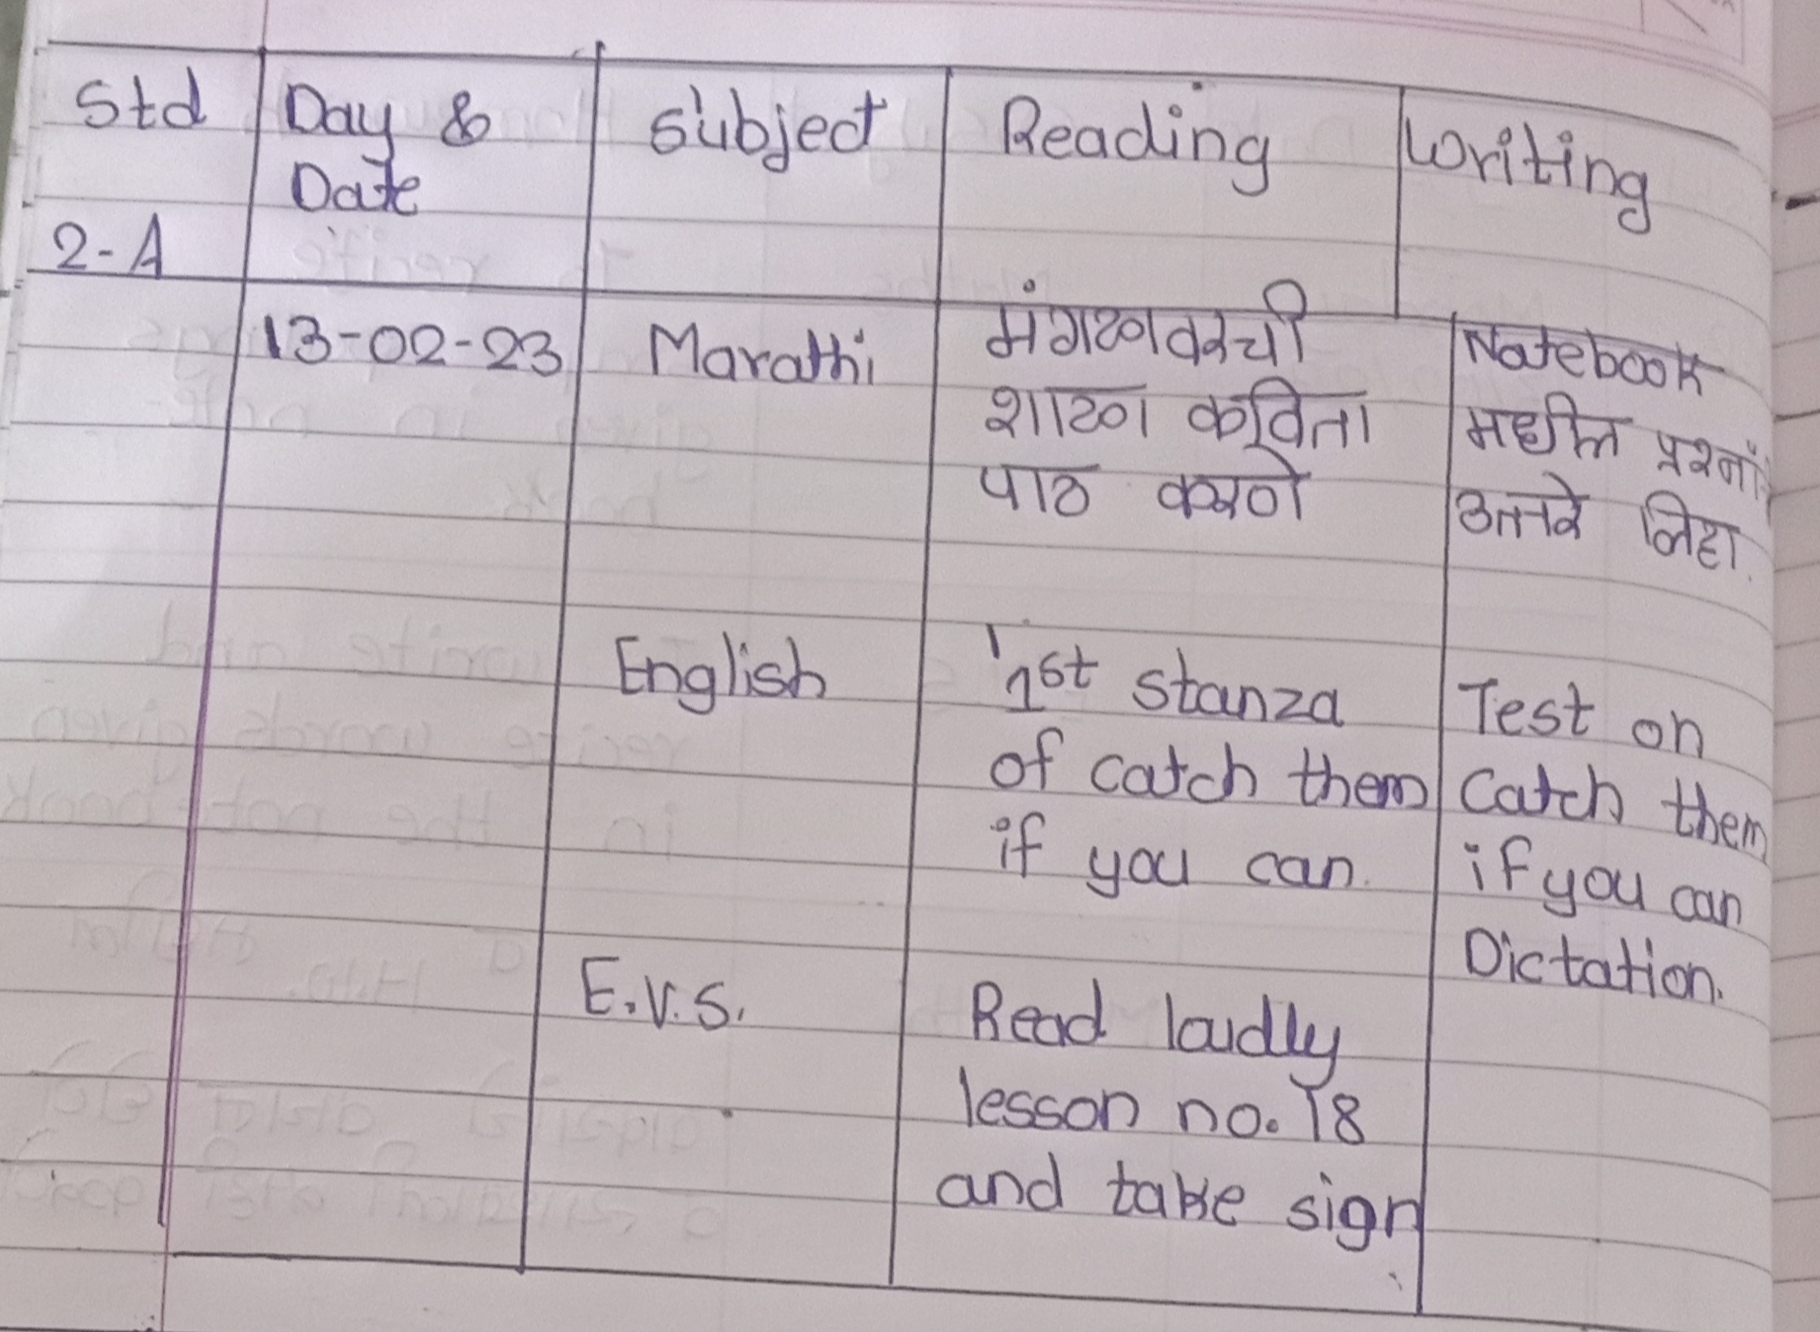 Std
Day &
Date
Subject
Reading
Writing
2-A
13-02-23
Marathi
मंगळावरची
शाळा कविता
पाठ करणे
Notebook
मधील प्रश्नां
उत्तरे लिहा.
English
1st stanza
of catch them
if you can.
Test on
Catch them
if you can
Dictation.
E.V.S.
Read loudly
lesson no. 18
and take sign